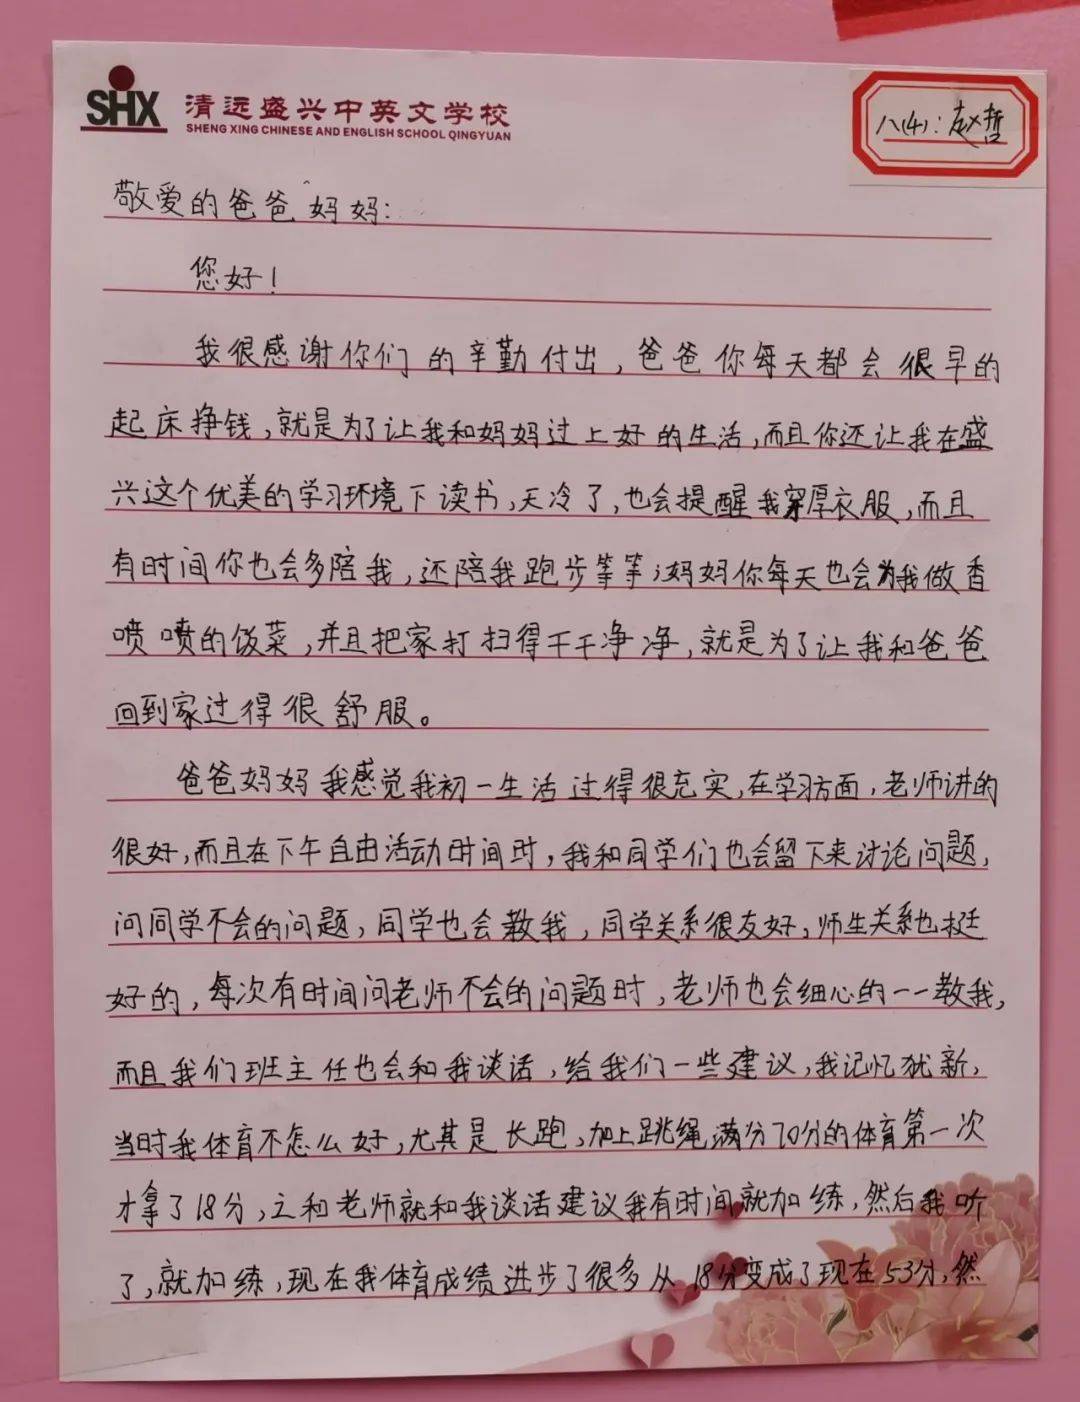 SHX 清远盛兴中英文学校
SHENG XING CHINESE AND ENGLISH SCHOOL QINGYUAN
八(4):赵哲
敬爱的爸爸、妈妈:
您好!
我很感谢你们的辛勤付出,爸爸你每天都会很早的
起床挣钱,就是为了让我和妈妈过上好的生活,而且你还让我在盛
兴这个优美的学习环境下读书,天冷了,也会提醒我穿厚衣服,而且
有时间你也会多陪我,还陪我跑步等等;妈妈你每天也会为我做香
喷喷的饭菜,并且把家打扫得干干净净,就是为了让我和爸爸
回到家过得很舒服。
爸爸妈妈我感觉我初一生活过得很充实,在学习方面,老师讲的
很好,而且在下午自由活动时间时,我和同学们也会留下来讨论问题,
问同学不会的问题,同学也会教我,同学关系很友好,师生关系也挺
好的,每次有时间问老师不会的问题时,老师也会细心的一一教我,
而且我们班主任也会和我谈话,给我们一些建议,我记忆犹新,
当时我体育不怎么好,尤其是长跑,加上跳绳满分70分的体育第一次
才拿了18分,之和老师就和我谈话建议我有时间就加练,然后我听
了,就加练,现在我体育成绩进步了很多从18分变成了现在53分,然